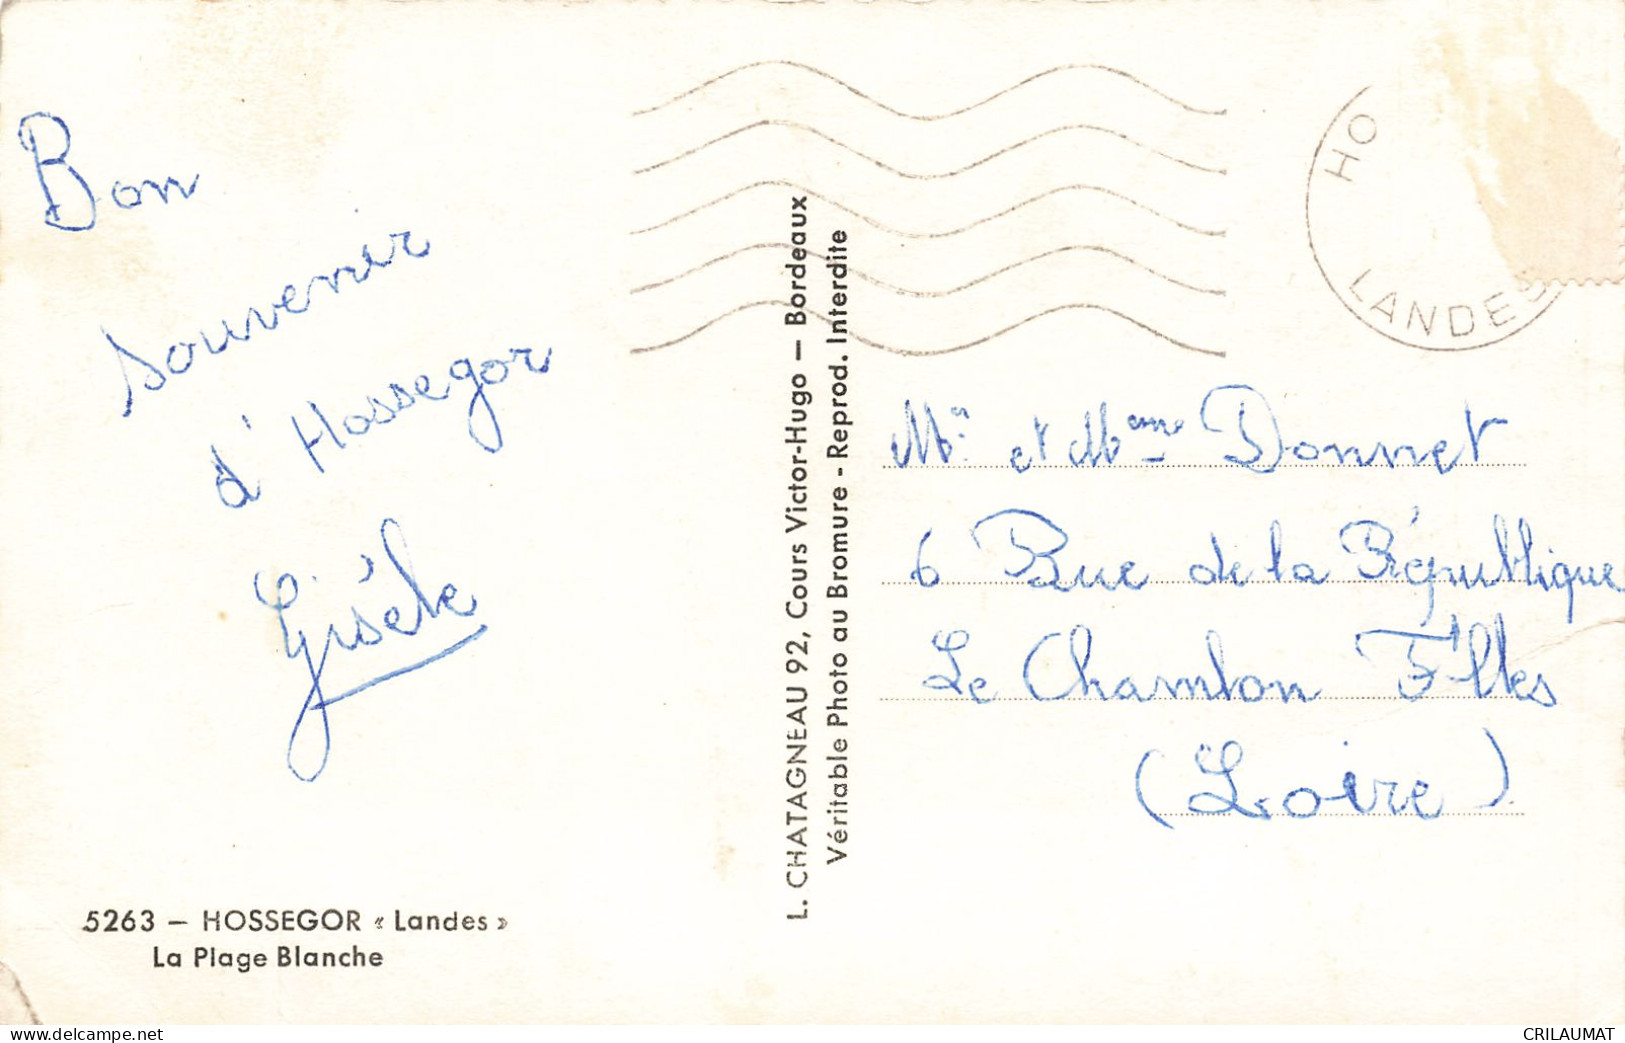 Bon
souvenir
d'Hossegor
Gisèle
5263 – HOSSEGOR « Landes »
La Plage Blanche
L. CHATAGNEAU 92, Cours Victor-Hugo – Bordeaux
Véritable Photo au Bromure - Reprod. Interdite
HO
LANDES
Mr. et Mme Donnet
6 Rue de la République
Le Chambon F'lles
(Loire)
www.delcampe.net
CRILAUMAT